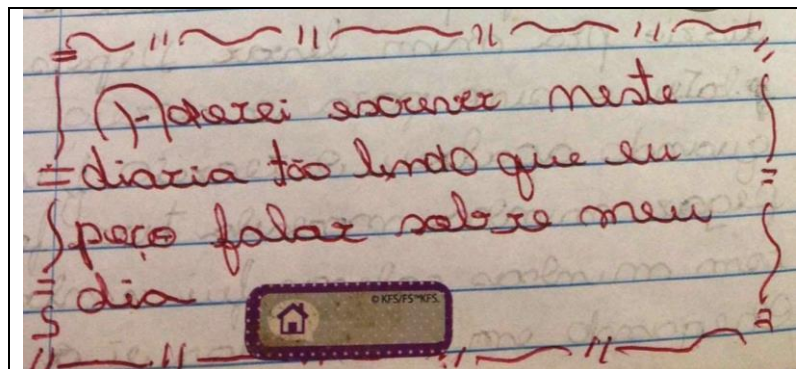 Adorei escrever neste
diaria tão lindo que eu
poço falar sobre meu
dia
© KFS/FS™KFS.